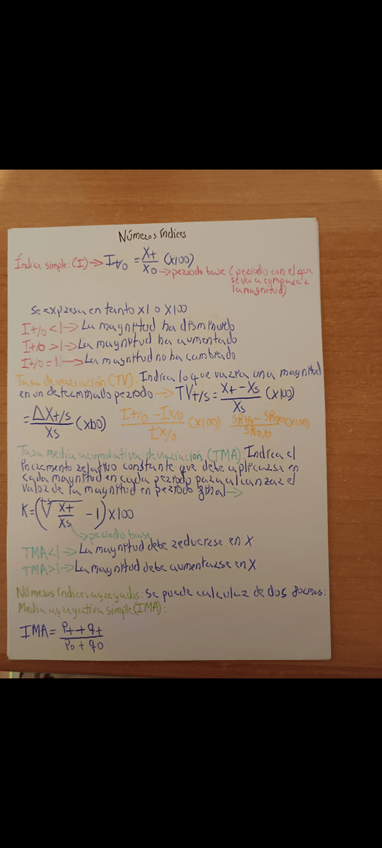 Números índices
Índice simple (I) → It/0 = Xt/X0 (x100)
→ periodo base (periodo con el que
se va a comparar
la magnitud)
Se expresa en tanto x1 o x100
It/0 < 1 → La magnitud ha disminuido
It/0 > 1 → La magnitud ha aumentado
It/0 = 1 → La magnitud no ha cambiado
Tasa de variación (TV): Indica lo que varía una magnitud
en un determinado periodo → TVt/s = Xt - Xs/Xs (x100)
= ΔXt/s/Xs (x100) It/0 - Is/0/Is/0 (x100)
Tasa media acumulativa de variación (TMA): Indica el
incremento relativo constante que debe aplicarse en
cada magnitud en cada periodo para alcanzar el
valor de la magnitud en periodo final →
K = (√ Xt/Xs - 1) x100
→ periodo base
TMA < 1 → La magnitud debe reducirse en X
TMA > 1 → La magnitud debe aumentarse en X
Números índices agregados: Se puede calcular de dos formas:
Media agregativa simple (IMA):
IMA = Pt + qt/P0 + q0